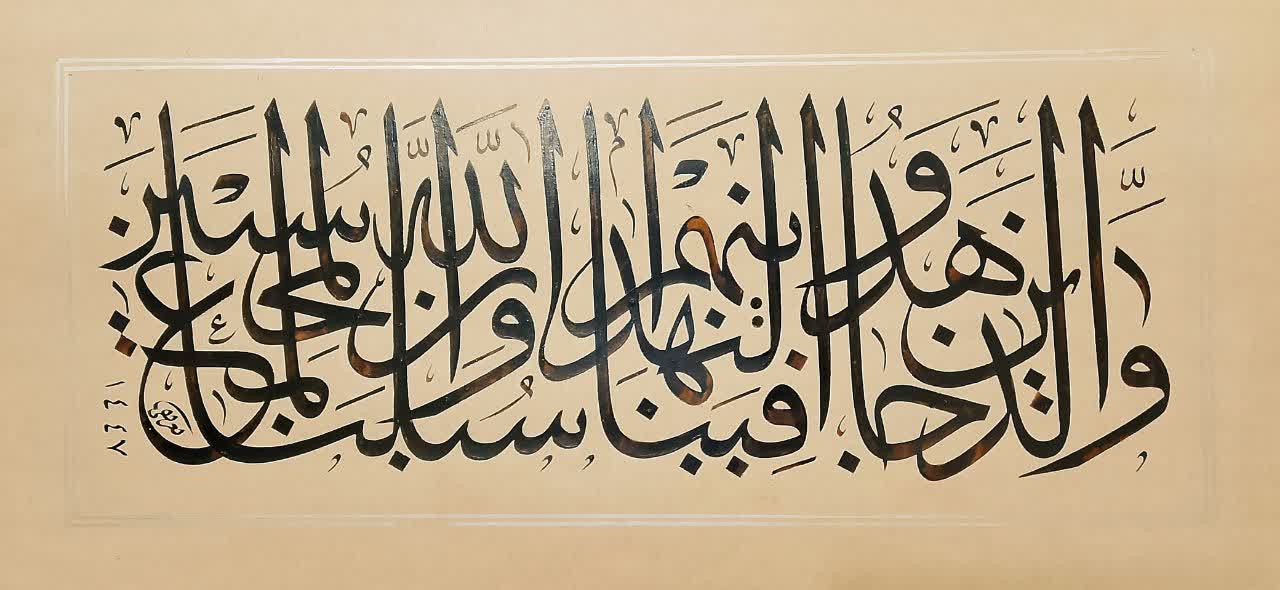 وَالَّذِينَ جَاهَدُوا فِينَا لَنَهْدِيَنَّهُمْ سُبُلَنَا وَإِنَّ اللَّهَ لَمَعَ الْمُحْسِنِينَ
١٤٤٧